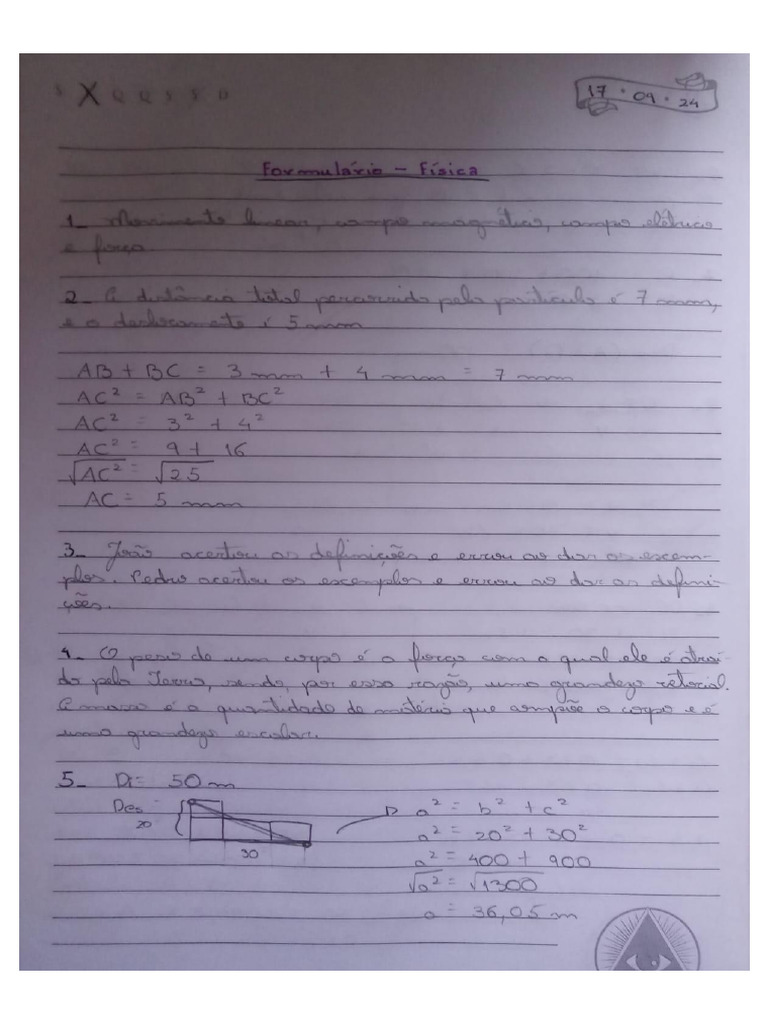 S X Q Q S S D
17 · 09 · 24
Formulário - Física
1_ Movimento linear, campo magnético, campo elétrico
e força
2_ A distância total percorrida pela partícula é 7 mm,
e o deslocamento é 5 mm
AB + BC = 3 mm + 4 mm = 7 mm
AC² = AB² + BC²
AC² = 3² + 4²
AC² = 9 + 16
√AC² = √25
AC = 5 mm
3_ João acertou as definições e errou ao dar os exem-
plos. Pedro acertou os exemplos e errou ao dar as defini-
ções.
4_ O peso de um corpo é a força com a qual ele é atraí-
do pela Terra, sendo, por essa razão, uma grandeza vetorial.
A massa é a quantidade de matéria que compõe o corpo e é
uma grandeza escalar.
5_ Di = 50 m
Des =
20
30
a² = b² + c²
a² = 20² + 30²
a² = 400 + 900
√a² = √1300
a = 36,05 m